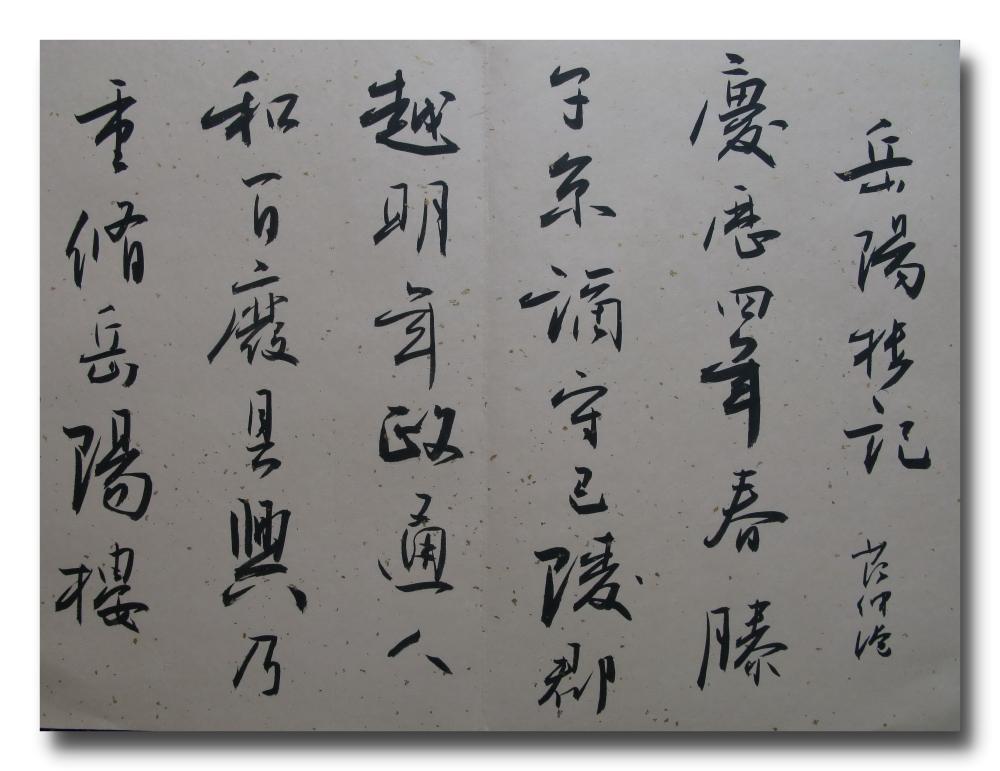 岳陽楼記 范仲淹
慶歷四年春滕
子京謫守巴陵郡
越明年政通人
和百廢具興乃
重脩岳陽樓